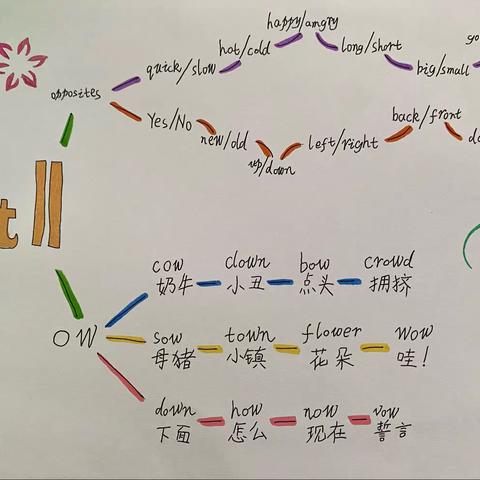 opposites
quick/slow
hot/cold
happy/angry
long/short
big/small
go
Yes/No
new/old
up/down
left/right
back/front
t II
ow
cow clown bow crowd
奶牛 小丑 点头 拥挤
sow town flower wow
母猪 小镇 花朵 哇!
down how now vow
下面 怎么 现在 誓言